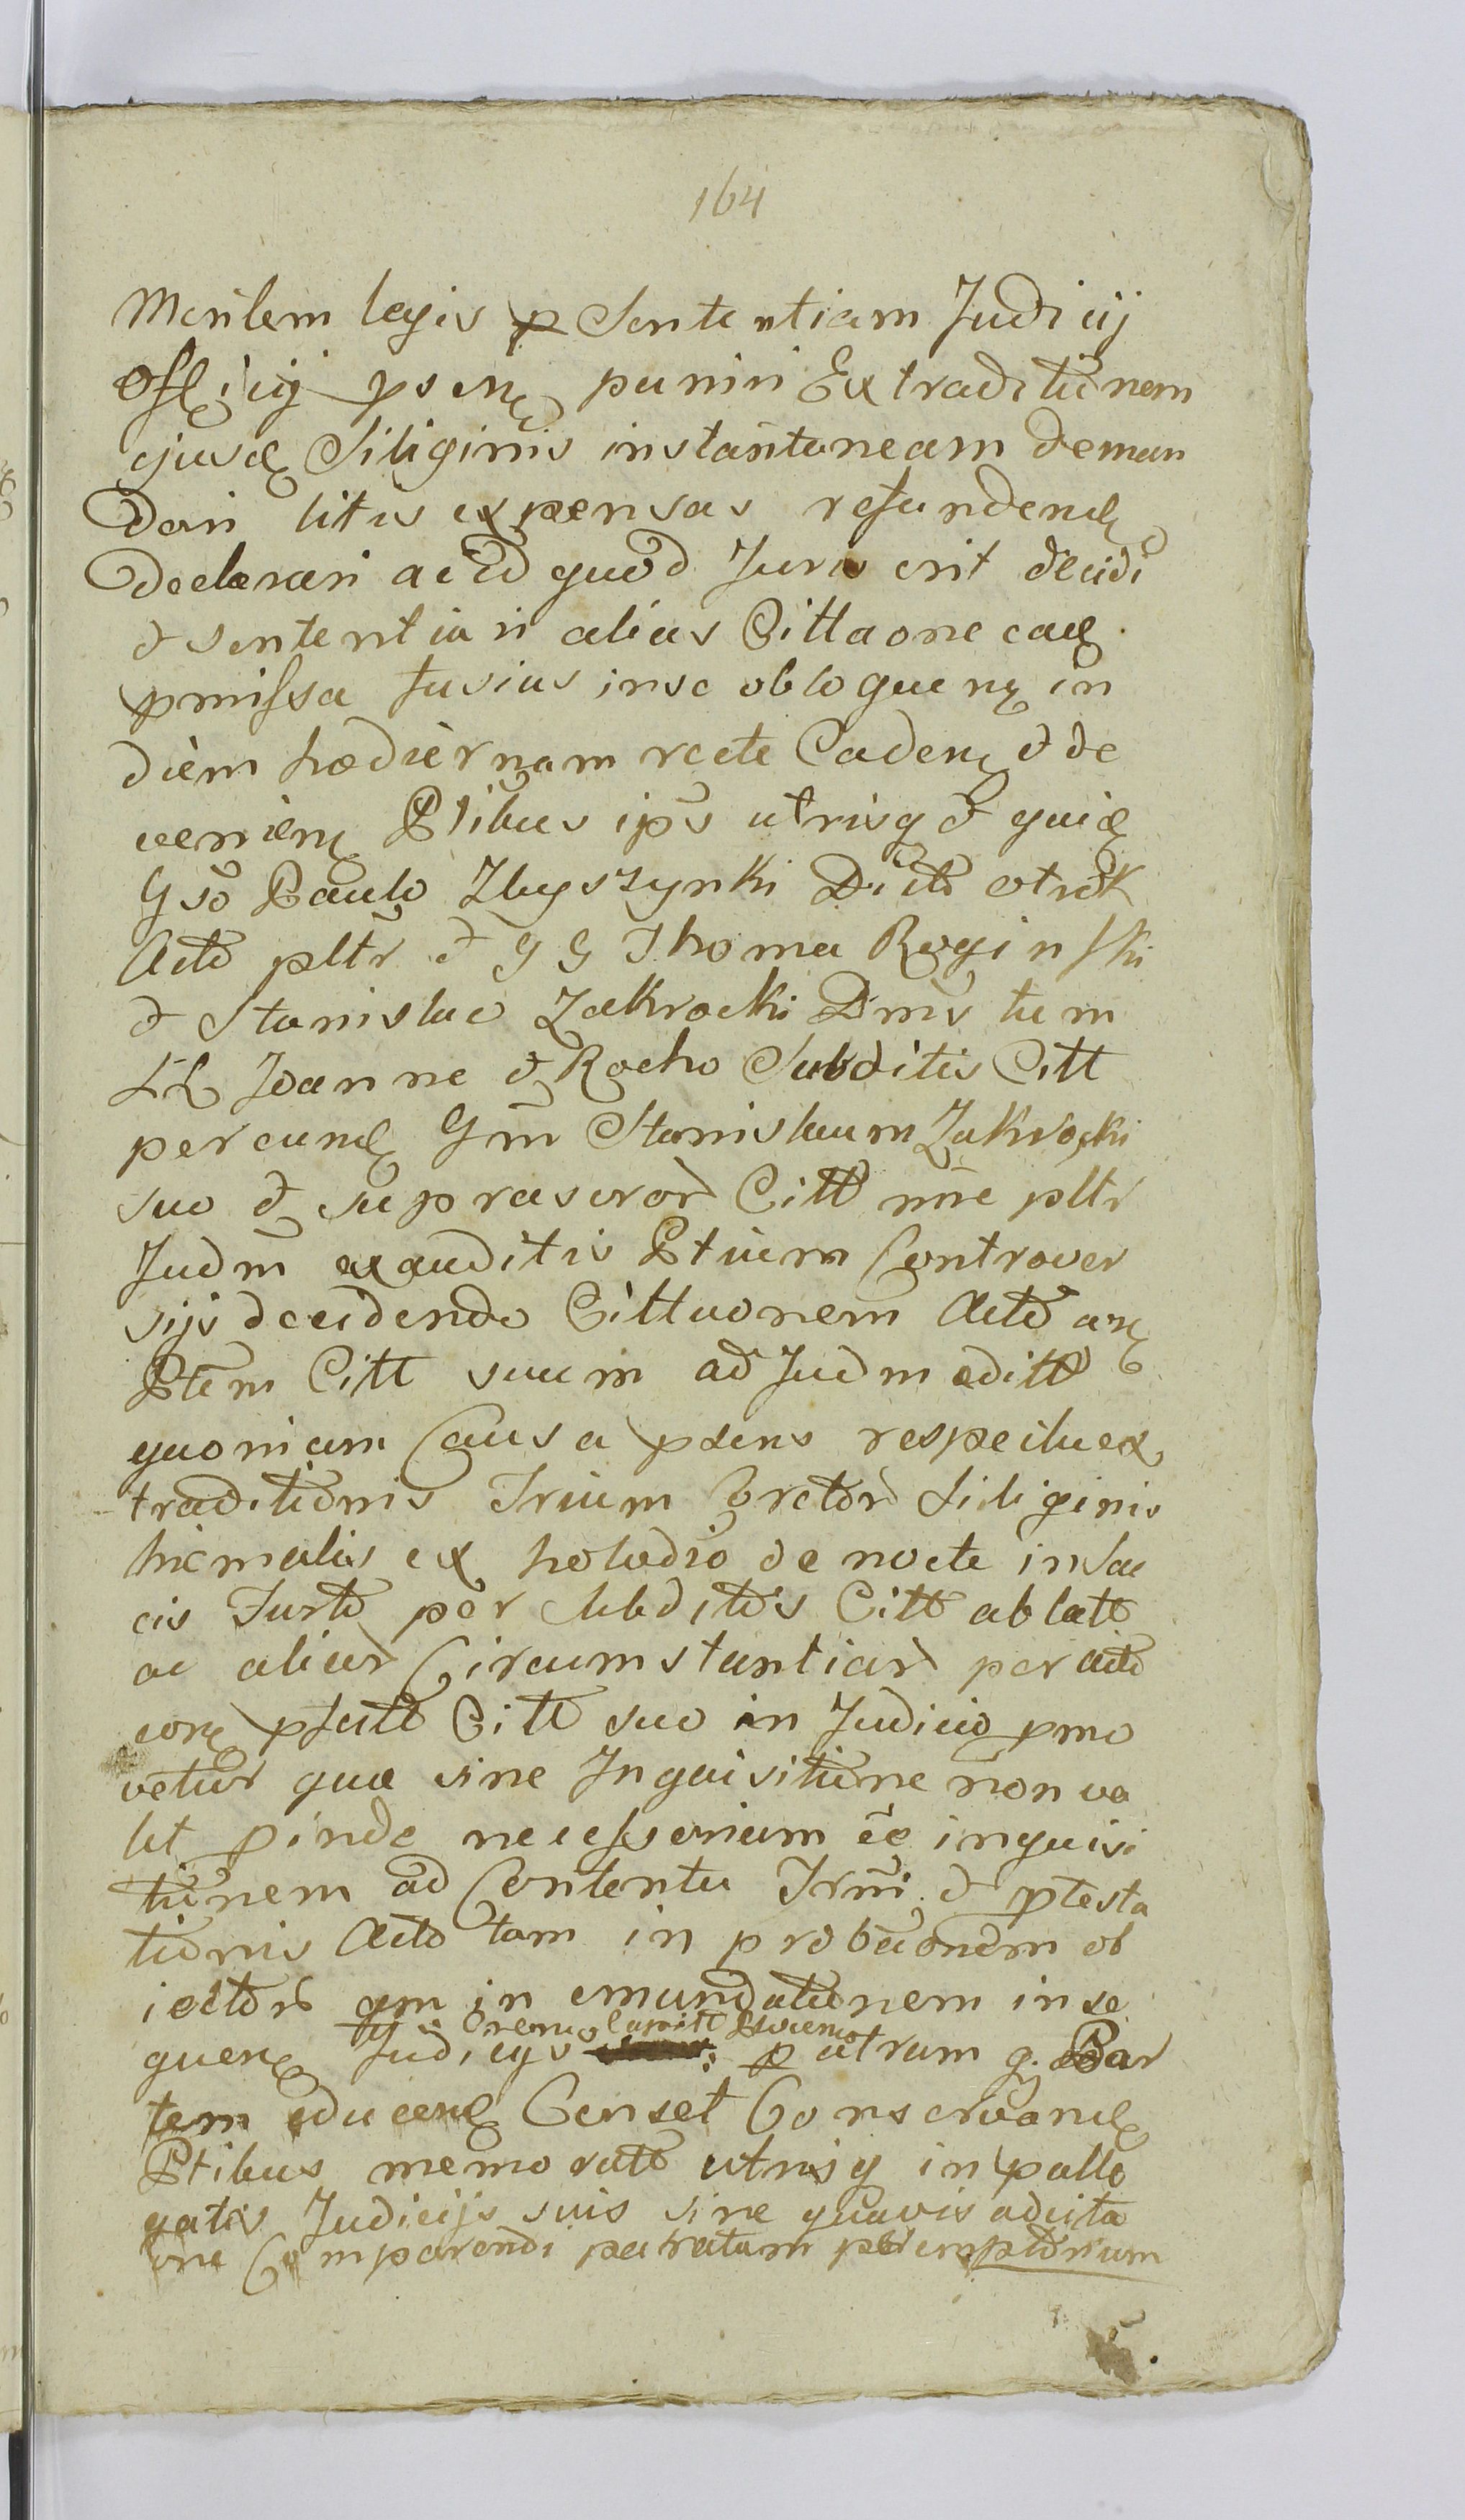 164
Mentem legis p Sententiam Judicij
Officij psen puniri Extraditionem
ejusd Siliginis instantaneam deman
dari litis expensas refundend
declarari ac id quod Juris erit decidi
& sententiari alias Cittaone ead
pmissa fusius in se obloquen in
diem hodiernam recte Caden & de
venien Ptibus ips utrisq & quid
Gso Paulo Zbyszynki Dicto otrok
Acto pltr & G G Thoma Roginski
& Stanislao Zakrocki Dnis tum
LL Joanne & Rocho Subditis Citt
per eund Gm Stanislaum Zakrocki
suo & suprascror Citt nne pltr
Judm exauditis Ptium Controver
sijs decidendo Cittaonem Acto an
Ptem Citt suum ad Judm editt
quoniam Causa psens respectu ex
traditionis Trium Coretor Siliginis
hiemalis ex hoładio de nocte in Sac
cis Furto per Subditos Citt ablato
ac aliar Circumstantiar per acto
con pfato Citt suo in Judicio pmo
vetur quæ sine Inquisitione non va
let pinde necessarium ee inquisi
tionem ad Contenta Trmi & ptesta
tionis Acto tam in probaonem ob
iector qm in emundationem in se
quen Judicijs p utram q Par
tem educend Censet Conservand
Ptibus memorato utrisq in pallo
gatis Judicijs suis sine quavis adcita
one Comparendi paratam peremptorium